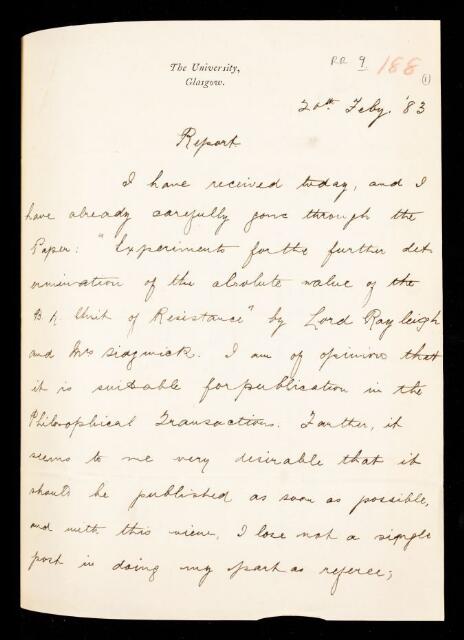 The University,
Glasgow.
RR 9
188
(1)
20th Feby. '83
Report
I have received today, and I
have already carefully gone through the
Paper: "Experiments for the further det
ermination of the absolute value of the
B A. Unit of Resistance" by Lord Rayleigh
and Mrs Sidgwick. I am of opinion that
it is suitable for publication in the
Philosophical Transactions. Farther, it
seems to me very desirable that it
should be published as soon as possible,
and with this view, I lose not a single
post in doing my part as referee;